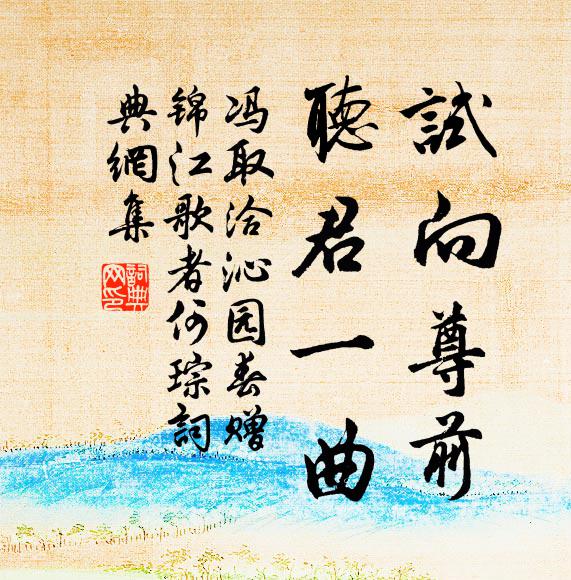 試向尊前
聽君一曲
冯取洽沁园春赠
锦江歌者何琮詞
典網集
詞典
网印